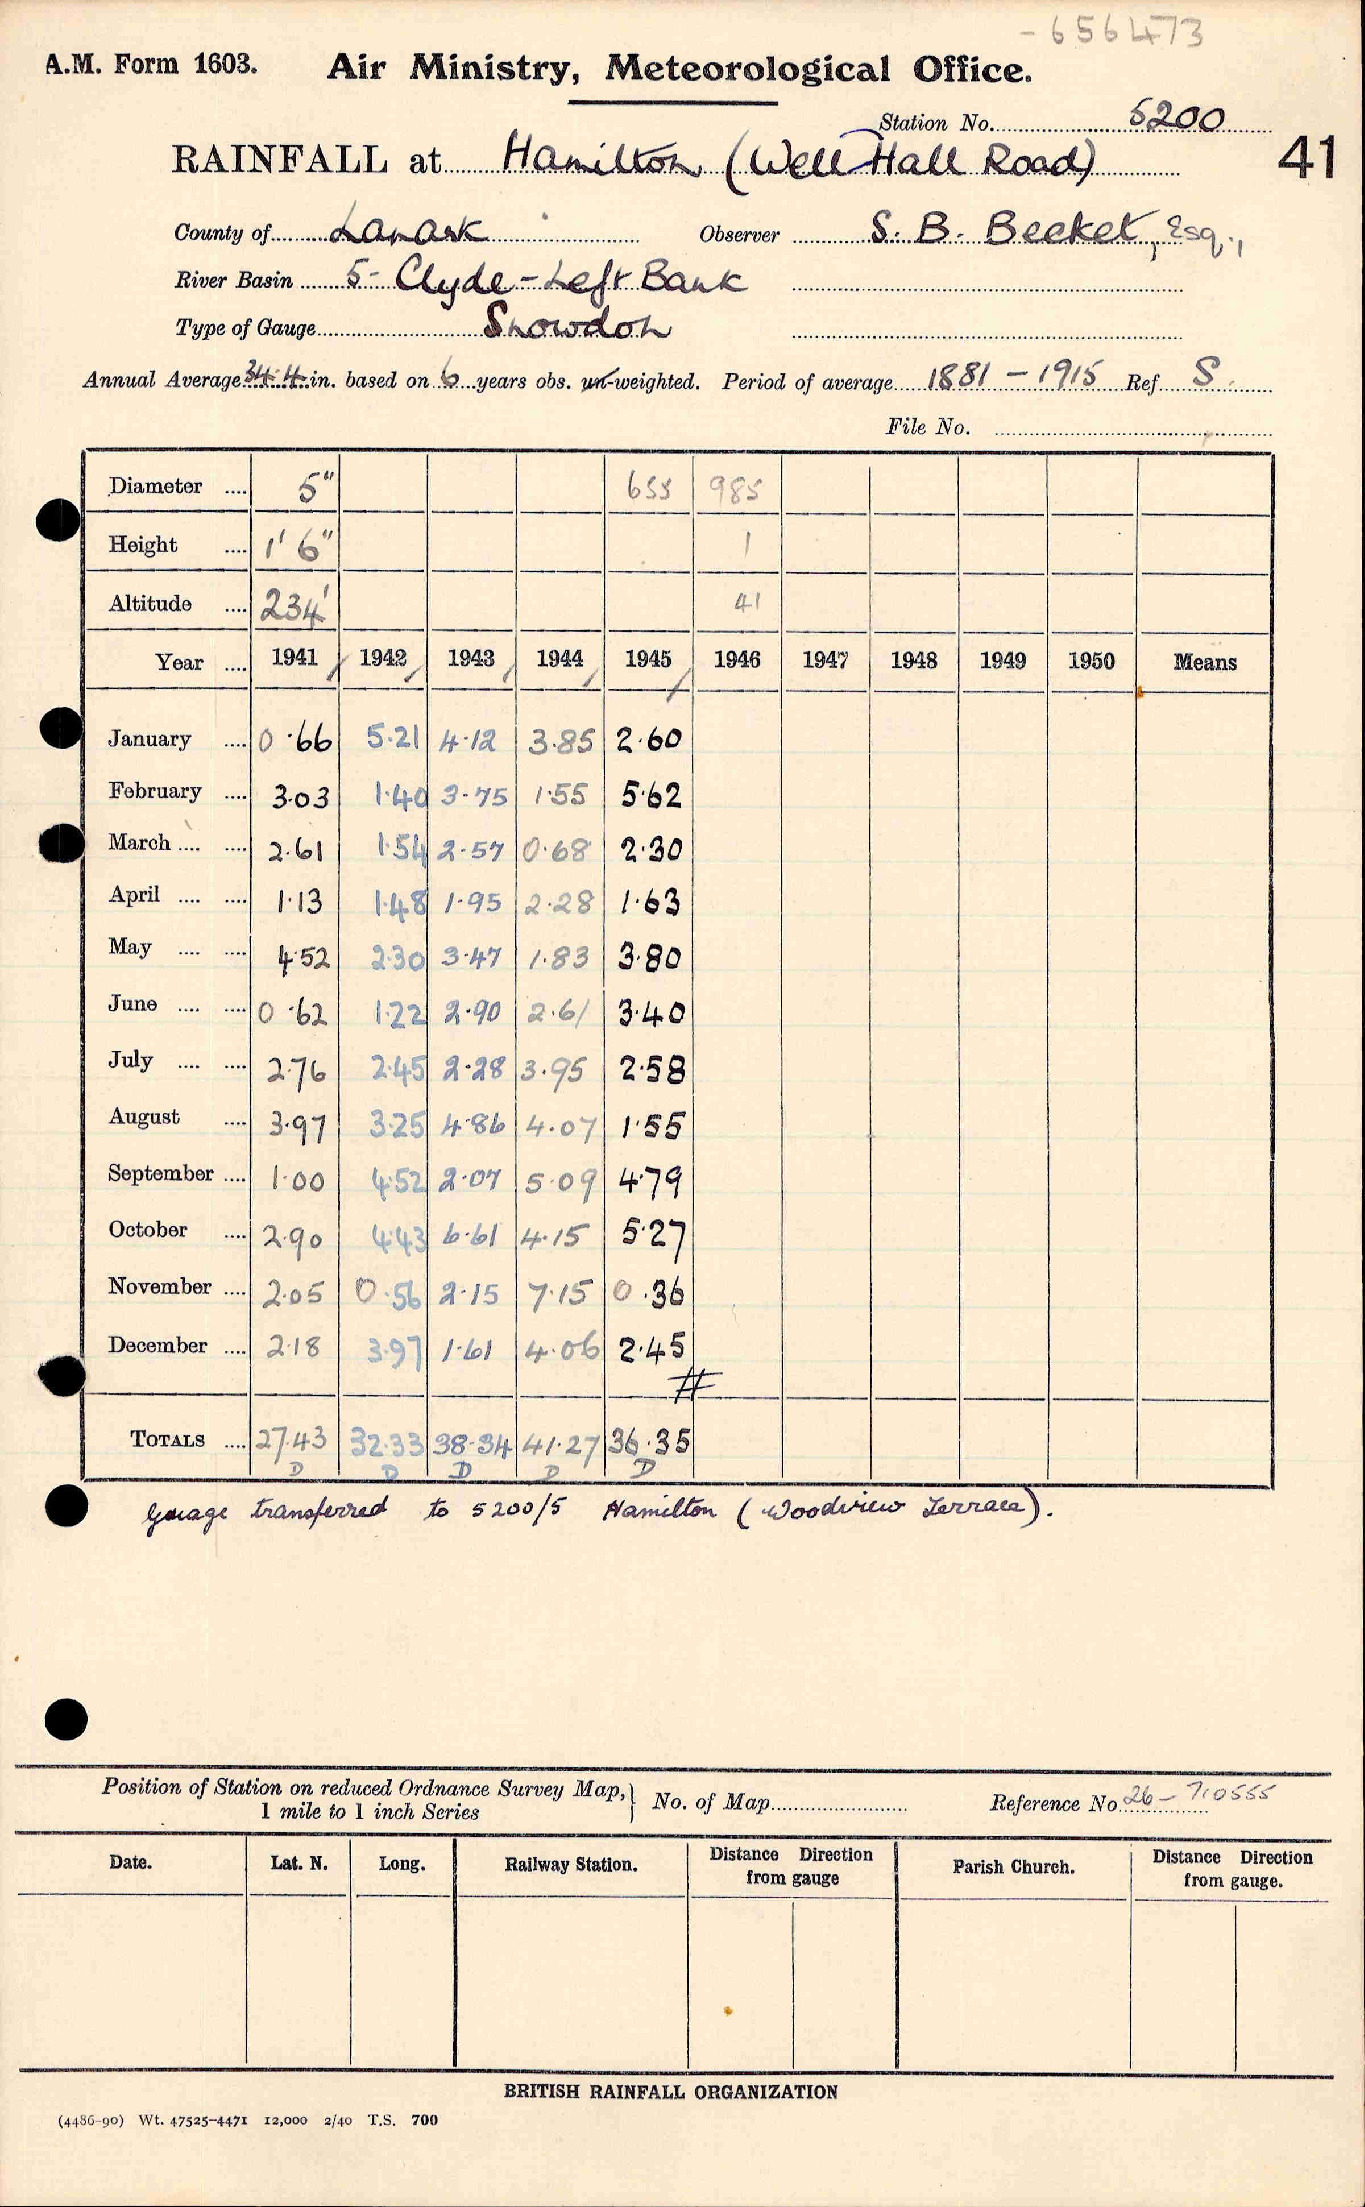 -656473
A.M. Form 1603. Air Ministry, Meteorological Office.
Station No. 5200
RAINFALL at Hamilton (Well Hall Road) 41
County of Lanark Observer S. B. Becket, Esq.,
River Basin 5- Clyde-Left Bank
Type of Gauge Snowdon
Annual Average 34.4 in. based on 6 years obs. un-weighted. Period of average 1881-1915 Ref S.
File No.
Diameter .... 5" 655 985
Height .... 1' 6" 1
Altitude .... 234' 41
Year .... 1941 1942 1943 1944 1945 1946 1947 1948 1949 1950 Means
January .... 0.66 5.21 4.12 3.85 2.60
February .... 3.03 1.40 3.75 1.55 5.62
March .... .... 2.61 1.54 2.57 0.68 2.30
April .... .... 1.13 1.48 1.95 2.28 1.63
May .... .... 4.52 2.30 3.47 1.83 3.80
June .... .... 0.62 1.22 2.90 2.61 3.40
July .... .... 2.76 2.45 2.28 3.95 2.58
August .... 3.97 3.25 4.86 4.07 1.55
September .... 1.00 4.52 2.07 5.09 4.79
October .... 2.90 4.43 6.61 4.15 5.27
November .... 2.05 0.56 2.15 7.15 0.36
December .... 2.18 3.97 1.61 4.06 2.45
#
TOTALS .... 27.43 32.33 38.34 41.27 36.35
D D D D D
Guage transferred to 5200/5 Hamilton (Woodview Terrace).
Position of Station on reduced Ordnance Survey Map, } No. of Map Reference No 26-710555
1 mile to 1 inch Series
Date. Lat. N. Long. Railway Station. Distance Direction from gauge Parish Church. Distance Direction from gauge.
BRITISH RAINFALL ORGANIZATION
(4486-90) Wt. 47525-4471 12,000 2/40 T.S. 700